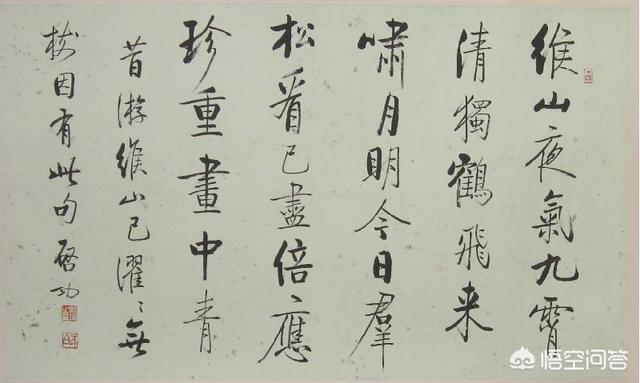 緱山夜氣九霄
清獨鶴飛来
嘯月明今日羣
松看已盡倍應
珍重畫中青
昔游緱山已濯〻無
樹因有此句 啓功
悟空问答